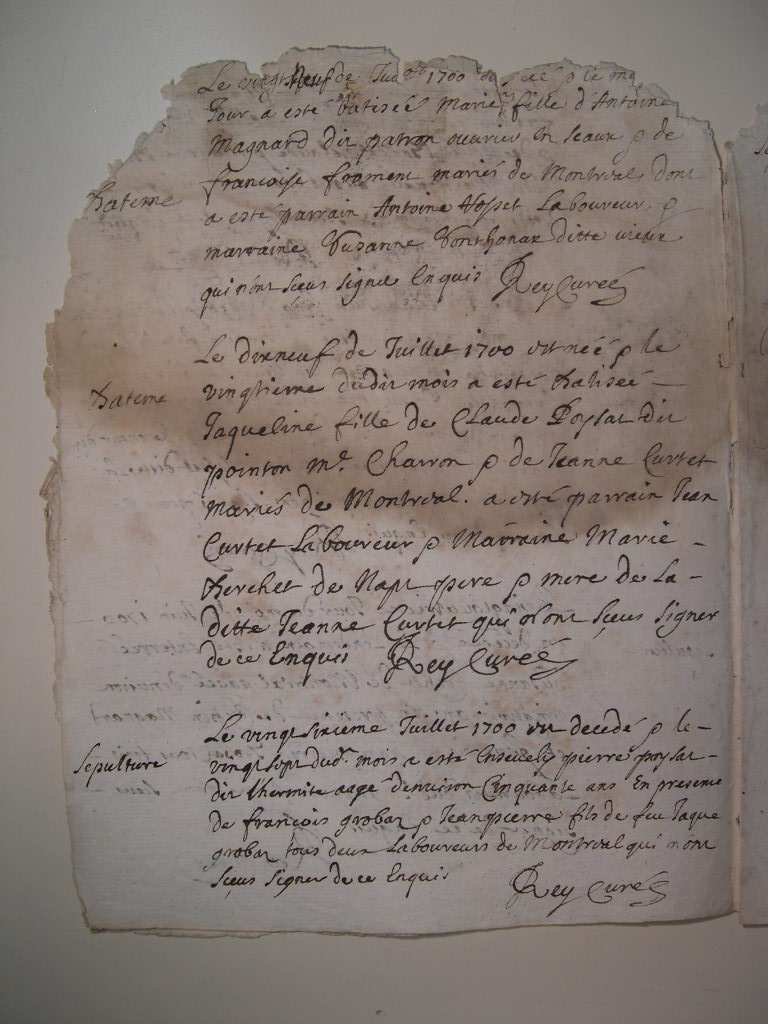 Le vingt neuf de 1700 le
Jour a esté Batiseé Marie fille d'Antoine
Magnard dit patron ouvrier en seaux & de
francoise froment mariés de Montreal dont
Bateme
a esté parrain Antoine Laboureur &
marraine Susanne ditte
qui n'ont sceus signé Enquis Rey Cureé
Le dixneuf de Juillet 1700 est neé & le
Bateme
vingtieme dudit mois a esté Batiseé
Jaqueline fille de Claude Poysat dit
pointon me. Charron & de Jeanne Curtet
Mariés de Montreal. a esté parrain Jean
Curtet Laboureur & Marraine Marie
Berchet de pere & mere de La-
ditte Jeanne Curtet qui n'ont sceus signer
de ce Enquis Rey Cureé
Le vingt sixieme Juillet 1700 est decedé & le-
Sepulture
vingt sept dudt. mois a esté Enseveli pierre poysat
dit l'hermite aagé denviron Cinquante ans En presence
de francois grobas & Jeanpierre fils de feu Jaque
grobas tous deux Laboureurs de Montreal qui n'ont
sceus signer de ce Enquis
Rey Curé